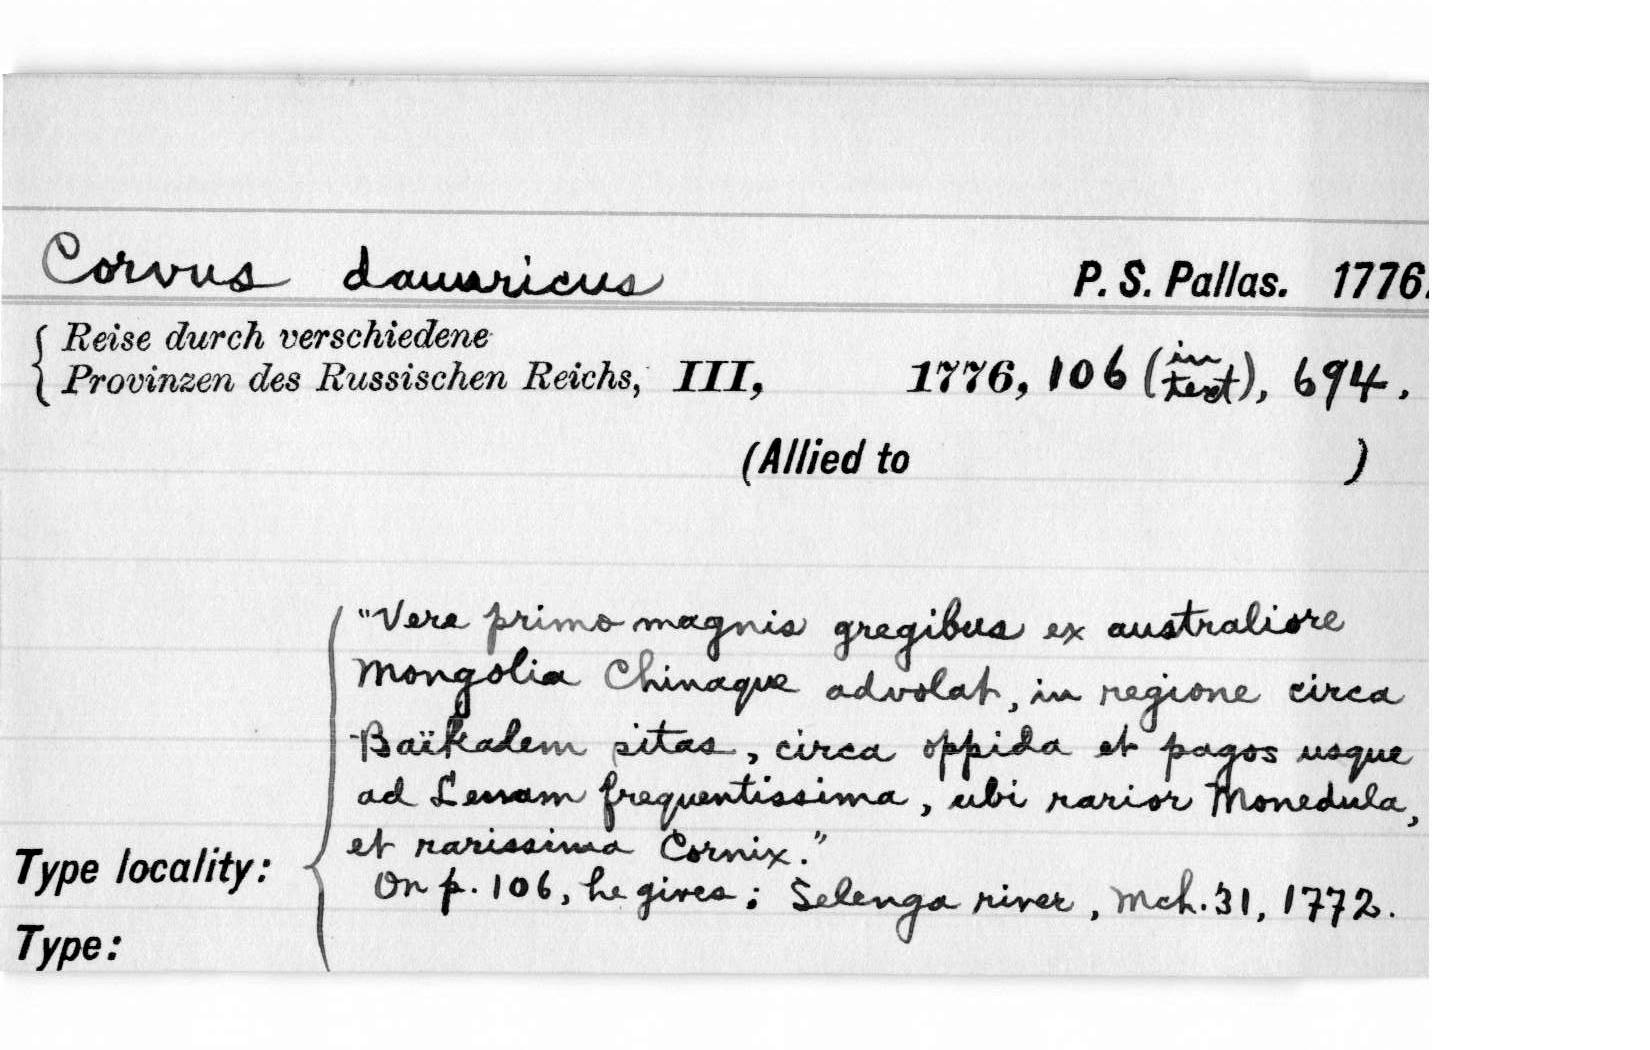 Corvus dauuricus P. S. Pallas. 1776.
Reise durch verschiedene
Provinzen des Russischen Reichs, III, 1776, 106 (in text), 694.
(Allied to )
"Vere primo magnis gregibus ex australiore
Mongolia Chinaque advolat, in regione circa
Baïkalem sitas, circa oppida et pagos usque
ad Lenam frequentissima, ubi rarior Monedula,
et rarissima Cornix."
Type locality: On p. 106, he gives: Selenga river, Mch. 31, 1772.
Type: